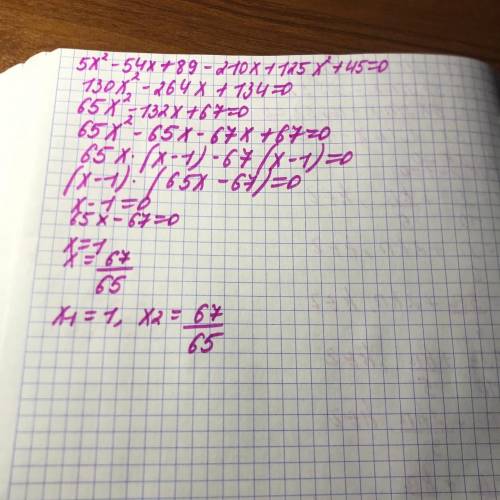 5x² - 54x + 89 - 210x + 125x² + 45 = 0
130x² - 264x + 134 = 0
65x² - 132x + 67 = 0
65x² - 65x - 67x + 67 = 0
65x · (x - 1) - 67 (x - 1) = 0
(x - 1) · (65x - 67) = 0
x - 1 = 0
65x - 67 = 0
x = 1
x = 67/65
x1 = 1, x2 = 67/65